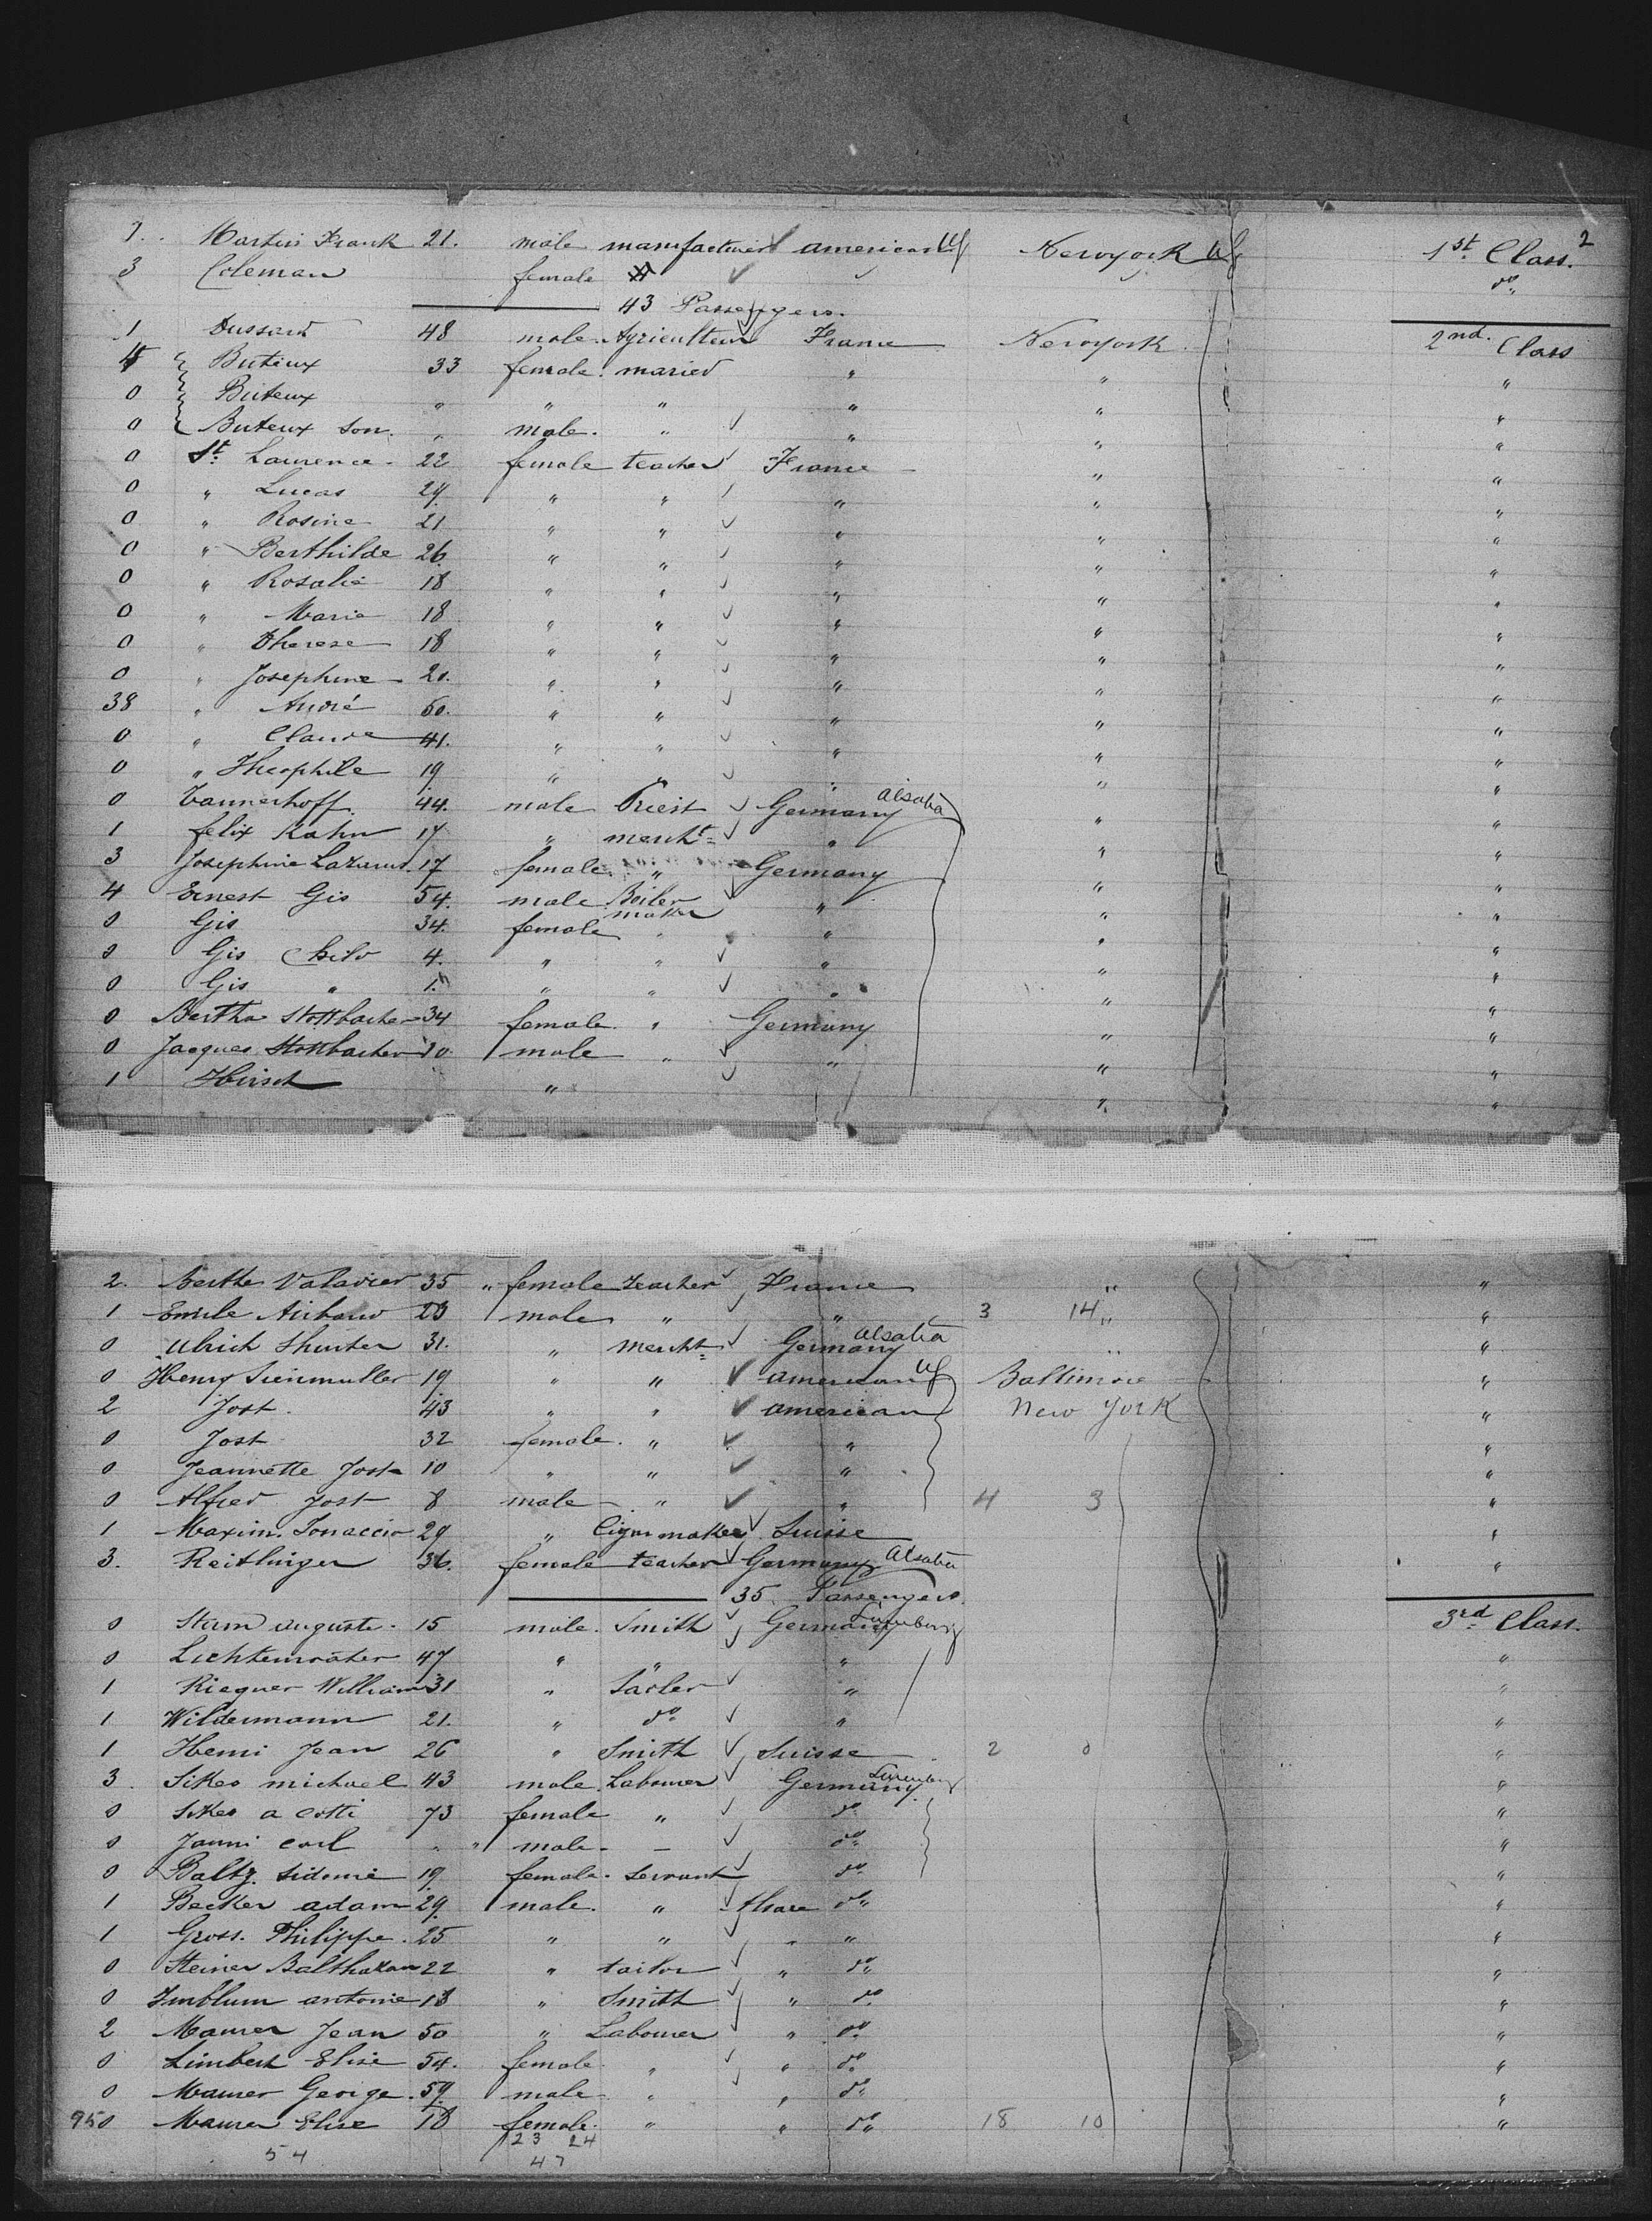 2
7. Martin Frank 21. male manufacturer american Newyork 1st Class.
3 Coleman female do
43 Passengers.
1 Dussard 48 male. Agriculteur France Newyork 2nd. Class
4 Buteux 33 female. maried " " "
0 Buteux " " " " " "
0 Buteux son. " male. " " " "
0 St. Laurence 22 female teacher France " "
0 " Lucas 29 " " " " "
0 " Rosine 21 " " " " "
0 " Berthilde 26 " " " " "
0 " Rosalie 18 " " " " "
0 " Marie 18 " " " " "
0 " Therese 18 " " " " "
0 " Josephine 20. " " " " "
38 " André 60. " " " " "
0 " Claude 41. " " " " "
0 " Theophile 19 " " " " "
0 Vannerhoff. 44. male Priest Germany Alsatia " "
1 felix Kahn 17 " mercht " " "
3 Josephine Lazarus. 17 female " Germany " "
4 Ernest Gis 54. male Boiler maker " " "
0 Gis 34. female " " " "
0 Gis Child 4. " " " " "
0 Gis " 1. " " " " "
0 Bertha Stottbacher 34 female. " Germany " "
0 Jacques Stottbacher 20 male " " " "
1 Hirsch " " "
2. Berthe Valadier 35 " female teacher France " "
1 Emile Airbaud 23 male " " 3 14 " "
0 Ulrich Shuster 31. " mercht Germany Alsatia " "
0 Henry Sienmuller 19 " " american Baltimore "
2 Jost. 43 " " american New York "
0 Jost 32 female. " " "
0 Jeannette Jost 10 " " " "
0 Alfred Jost 8 male " " 4 3 "
1 Maxim. Tonaccio 29 " Cigar maker Suisse "
3. Reitlinger 36. female teacher Germany Alsatia "
35 Passengers.
0 Stam auguste. 15 male. Smith Germany Luxemburg 3rd Class.
0 47 " " " "
1 William 31 " Sadler " "
1 Wildermann 21. " do " "
1 Henri Jean 26 " Smith Suisse 2 0 "
3. Sikes michael 43 male. Labourer Germany. Luxemburg "
0 Sikes a cotti 73 female " do "
0 Janni carl " " male - do "
0 Baltz. Sidonie 19. female. Servant do "
1 Becker adam 29. male. " Alsace do "
1 Gross. Philippe. 25 " " " " "
0 Steiner Balthazar 22 " tailor " do "
0 Imblum antoine 18 " Smith " do "
2 Maurer Jean 50 " Labourer " do "
0 Limbert Elise 54. female " " do "
0 Maurer George. 59. male " " do "
950 Maurer Elise 18 female. " " do 18 10 "
23 24
54 47